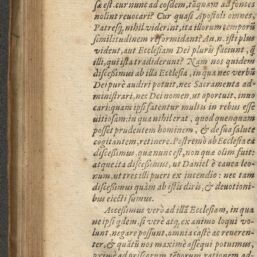 sa est. cur nunc ad eosdem, tāquam ad fontes
nolint reuocari? Cur quasi Apostoli omnes,
Patresq́; nihil viderint, ita illorum temporū
similitudinem reformidant? An. n. iste plus
vident, aut Ecclesiam Dei pluris faciunt, ꝗ̃
illi, qui ista tradiderant? Nam nos quidem
discessimus ab illa Ecclesia, in qua nec verbū
Dei purè audiri potuit, nec Sacramenta ad-
ministrari, nec Dei nomen, ut oportuit, inuo-
cari: quam ipsi fatentur multis in rebus esse
uitiosam: in qua nihil erat, quod quenquam
posset prudentem hominem, & de sua salute
cogitantem, retinere. Postremò ab Ecclesia ea
discessimus, quæ nunc est, non quæ olim fuit:
atque ita discessimus, ut Daniel è cauea leo-
num, ut tres illi pueri ex incendio: nec tam
discessimus quàm ab istis diris, & deuotioni-
bus eiecti sumus.
Accessimus verò ad illā Ecclesiam, in qua
ne ipsi qdem, si verè atq́; ex animo loqui vo-
lunt, negare possunt, omnia castè ac reueren-
ter, & quātū nos maximè assequi potuimus,